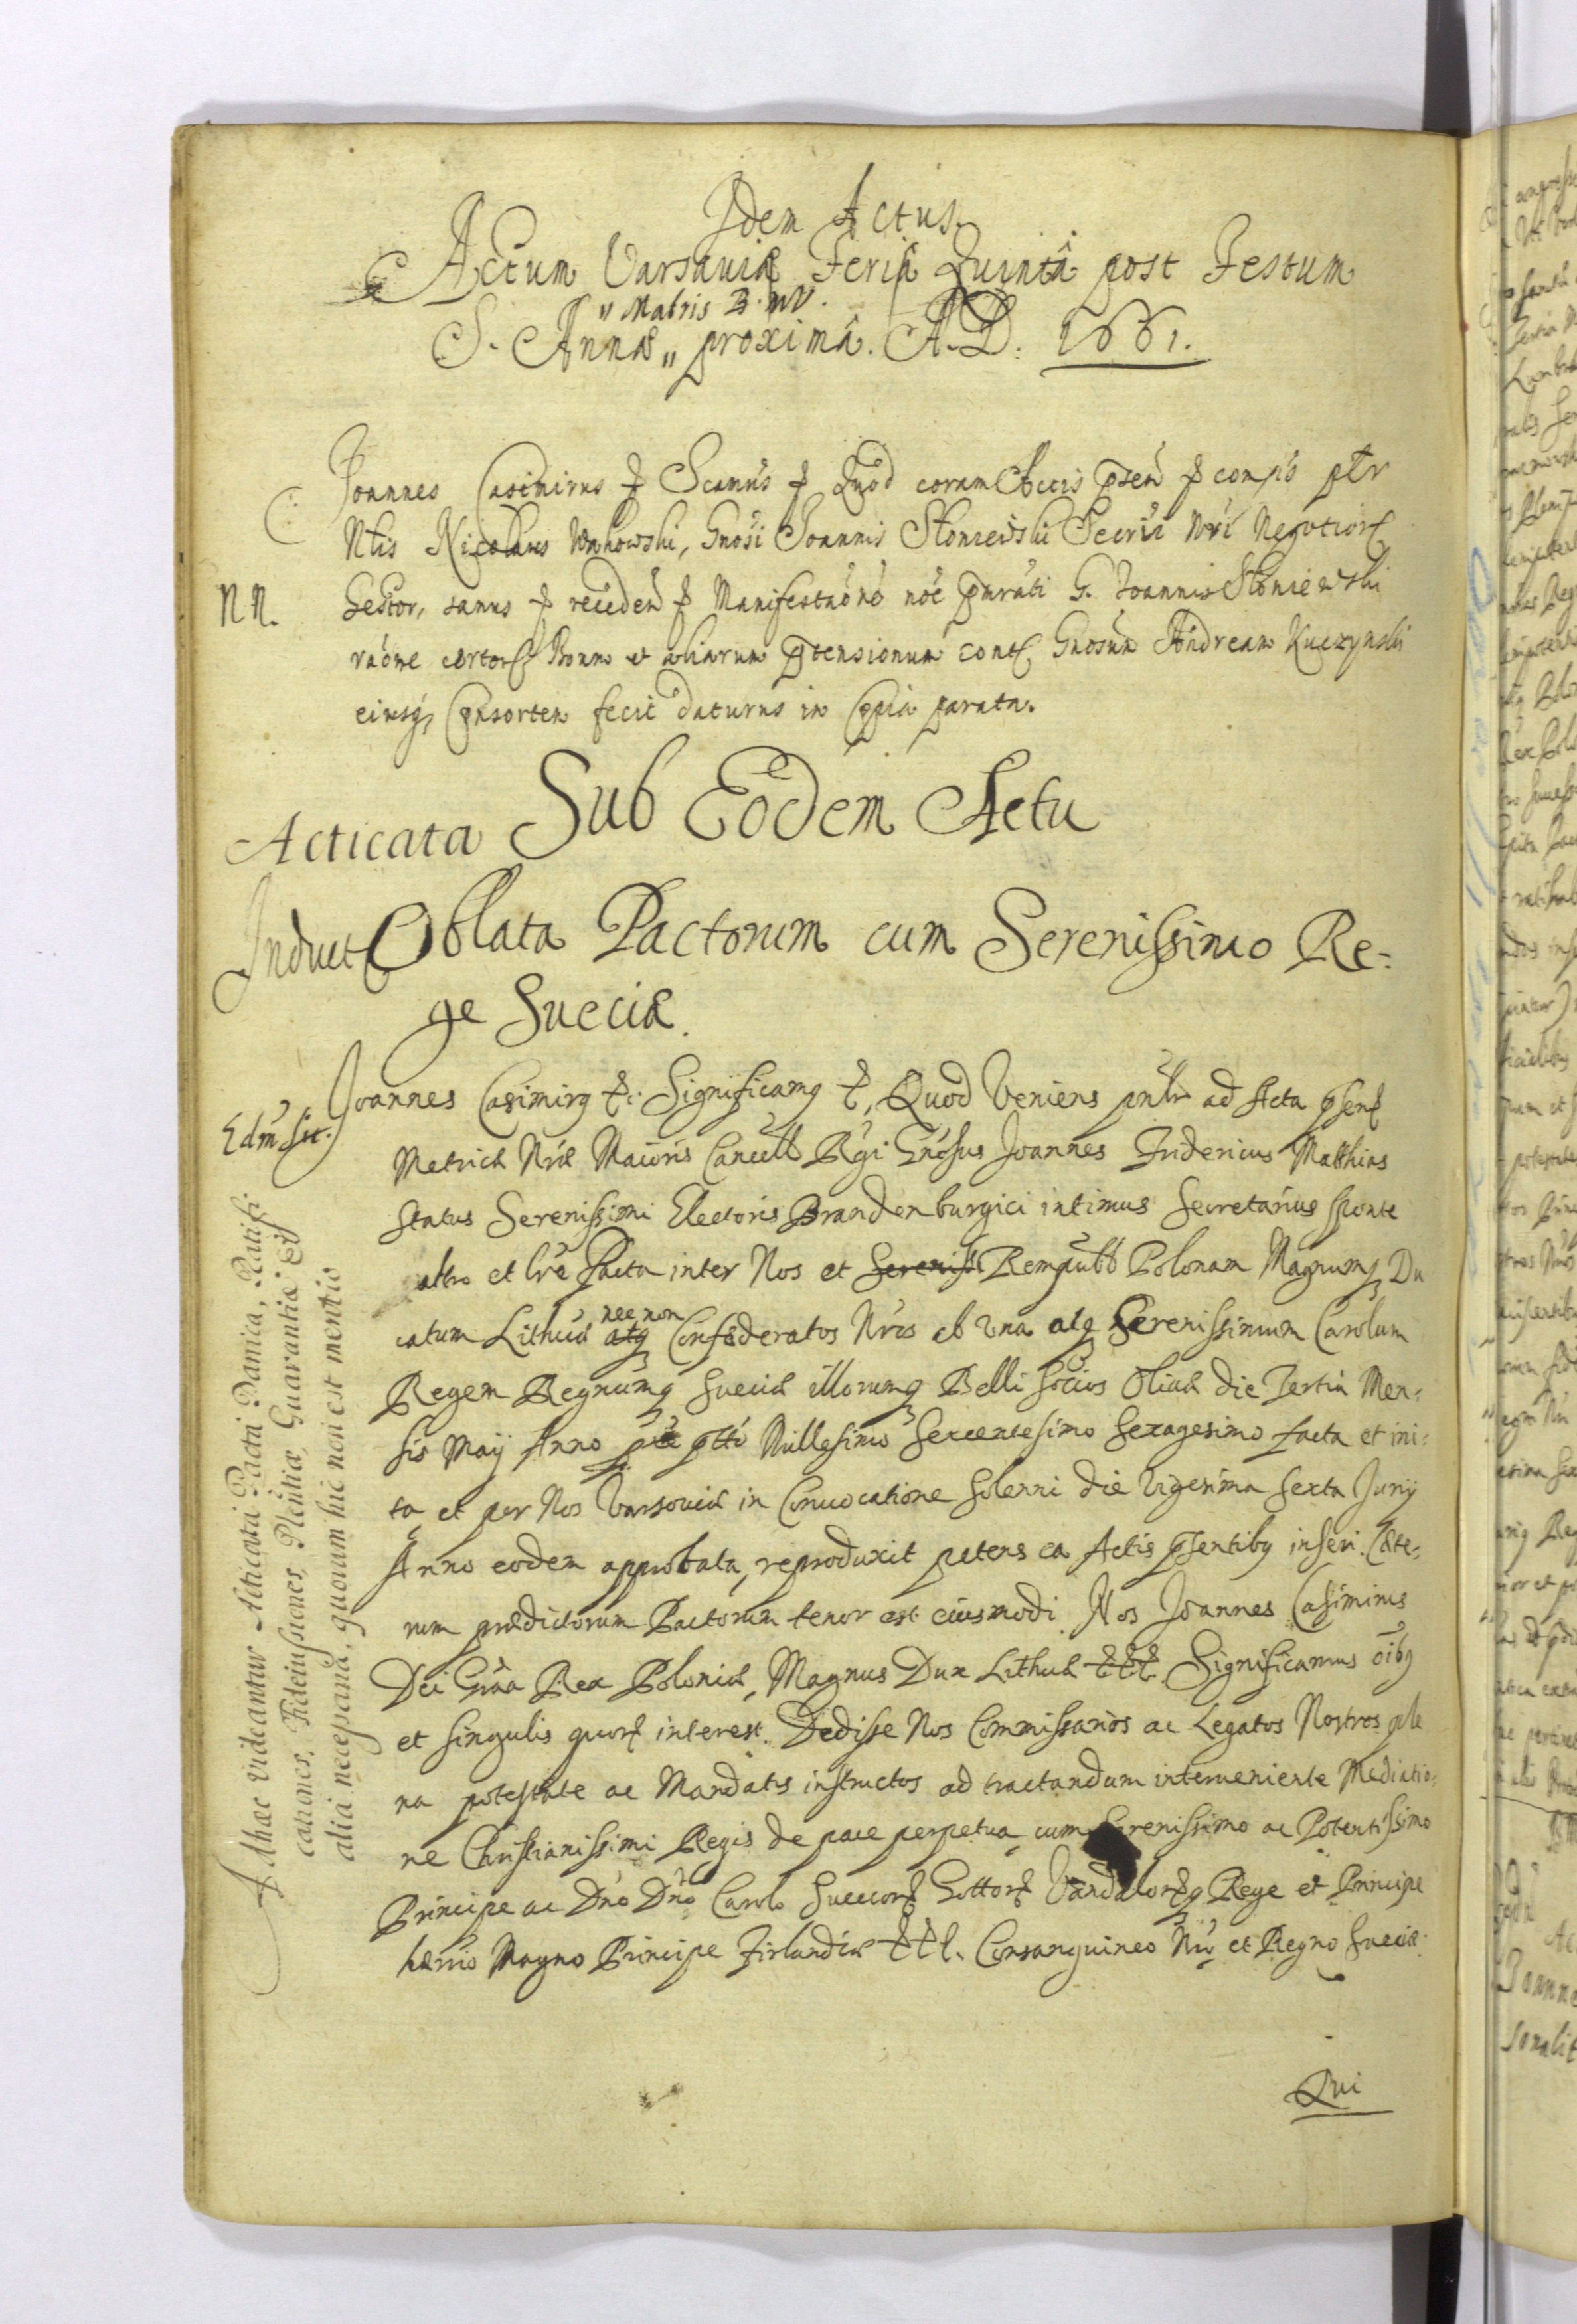 Idem Actus.
Actum Varsaviæ Feriâ Quintâ post Festum
„ Matris B. M V.
S. Annæ „ proximâ. A. D. 1661.
Joannes Casimirus Quod coram Actis compũs pltr
Nlis Nicolaus Gnosi Joannis Słoniewski Secrii Nri Negotior
NN. Gestor, sanus receden Manifestaõne noĩe G. Joannis Słoniewski
raõne certor Bonm et aliarum ptensionum cont Gnosum Andream Kuczynski
eiusq Consortem fecit daturus in Copia parata.
Acticata Sub Eodem Actu
Induct Oblata Pactorum cum Serenissimo Re-
ge Sueciæ.
Joannes Casimirq &c. Significamq &, Quod Veniens pnltr ad Acta psent
Edm̃ sit.
Metricæ Nræ Maioris Cancell Rgi Gnosus Joannes Fridericus Matthias
Status Serenissimi Electoris Brandenburgici intimus Secretarius sponte
et lre Pacta inter Nos et Sereniss Rempubb Polonam Magnumq Du
catum Lithuæ atq nec non Confæderatos Nros ab una atq Serenissimum Carolum
Regem Regnumq Sueciæ illorumq Belli Socios Olivæ die Tertia Men-
sis Maij Anno ptto Millesimo Sexcentesimo Sexagesimo facta et ini-
ta et per Nos Varsoviæ in Convocatione Solenni die Vigesima Sexta Junij
Anno eodem approbata, reproduxit petens ea Actis psentibq inseri. Cæte-
rum prædictorum Pactorum tenor est eiusmodi. Nos Joannes Casimirus
Dei Graa Rex Poloniæ, Magnus Dux Lithuæ &&& Significamus oibq
et singulis quor interest. Dedisse Nos Commissarios ac Legatos Nostros ple
na potestate ac Mandatis instructos ad tractandum interveniente Mediatio-
ne Christianissimi Regis de pace perpetua cum Serenissimo ac Potentissimo
Principe ac Dno Dno Carolo Suecor Gottor Vandalorq Rege et Principe
hærrio Magno Principe Finlandiæ &&&. Consanguineo Nro et Regno Sueciæ
Qui
Ad hæc videantur Acticata Pacta Danica, Ratifi-
cationes, Fideiussiones, Plentiæ, Guarantiæ Et
alia necepariã, quorum hic non est mentio